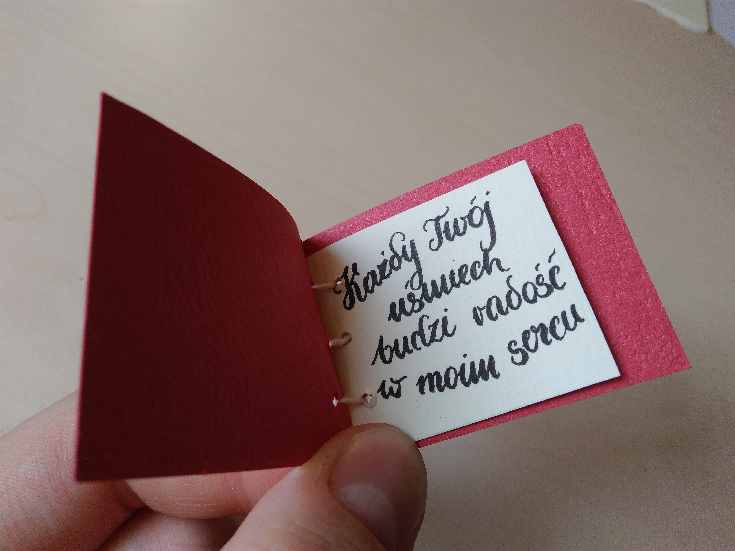 Każdy Twój
uśmiech
budzi radość
w moim sercu